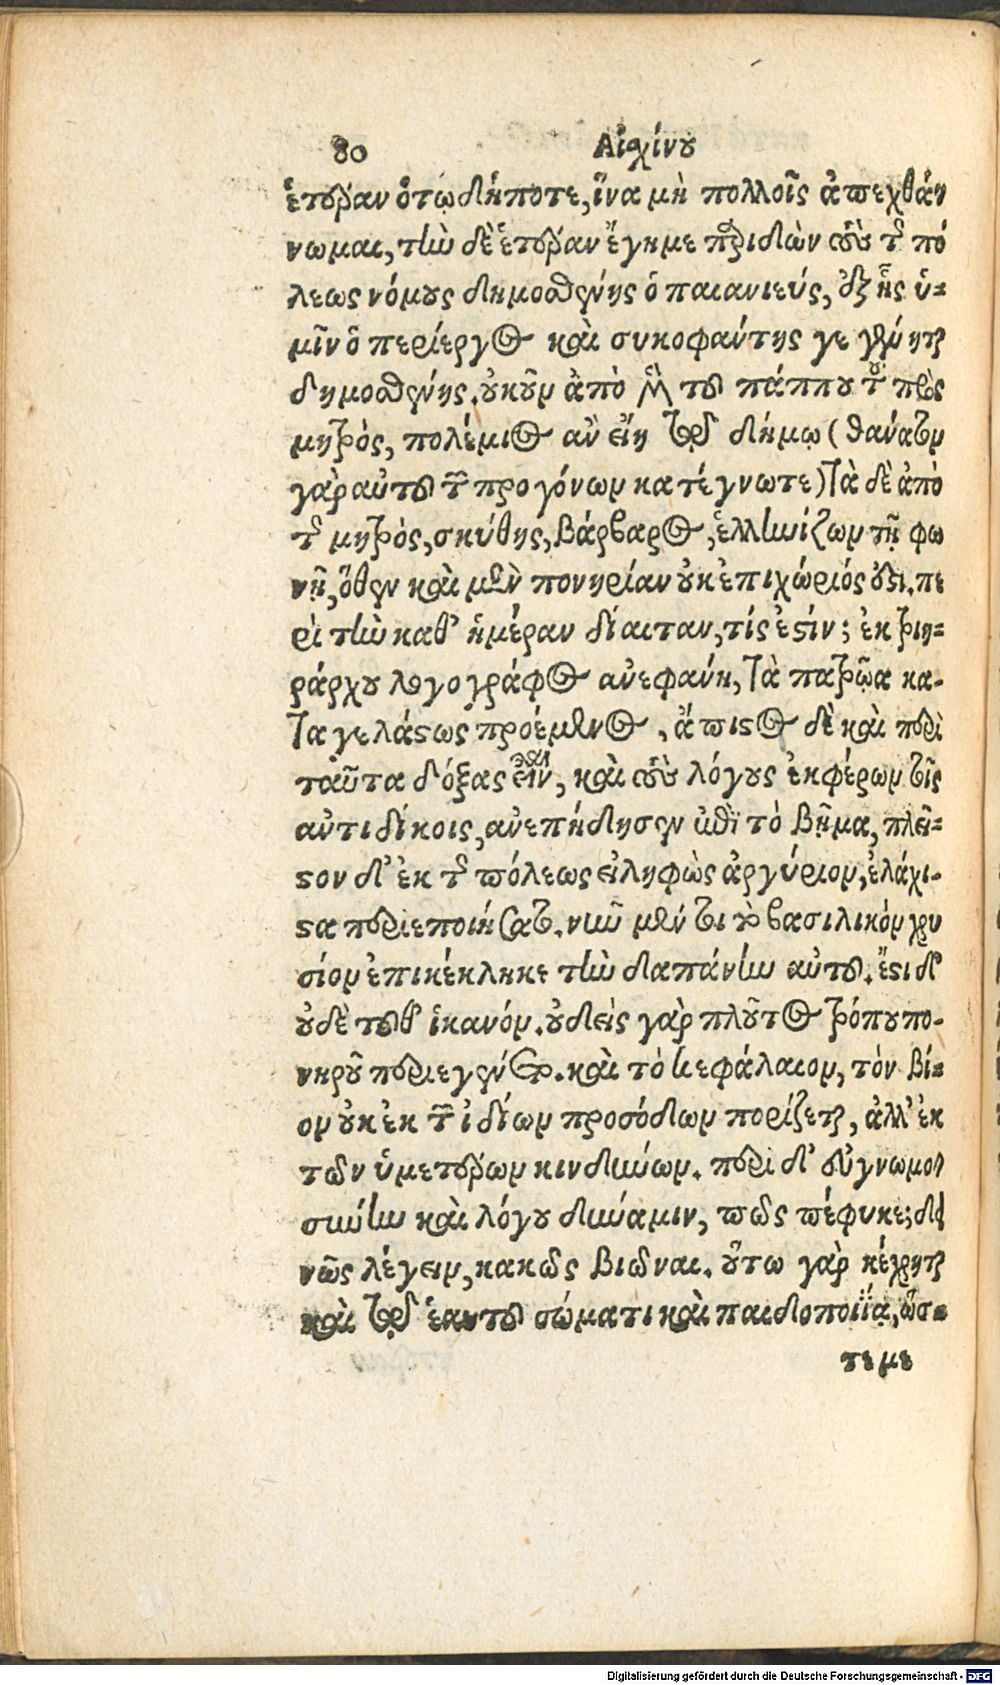 80 Αἰσχίνου
ἑτέραν ὅτῳ δήποτε, ἵνα μὴ πολλοῖς ἀπεχθά
νωμαι, τὴν δὲ ἑτέραν ἔγημε παριδὼν τοὺς τῆς πό
λεως νόμους δημοσθένης ὁ παιανιεύς, ἐξ ἧς ὑ-
μῖν ὁ περίεργος καὶ συκοφάντης γεγένηται
δημοσθένης. οὐκοῦν ἀπὸ μὲν τοῦ πάππου τοῦ πρὸς
μητρὸς, πολέμιος ἂν εἴη τῷ δήμῳ (θάνατον
γὰρ αὐτοῦ τῶν προγόνων κατέγνωτε) τὰ δὲ ἀπὸ
τῆς μητρὸς, σκύθης, βάρβαρος, ἑλληνίζων τῇ φω
νῇ, ὅθεν καὶ τὴν πονηρίαν οὐκ ἐπιχώριός ἐστι. πε
ρὶ τὴν καθ’ ἡμέραν δίαιταν, τίς ἐστίν; ἐκ τριη-
ράρχου λογογράφος ἀνεφάνη, τὰ πατρῷα κα-
ταγελάστως προέμενος, ἄπιστος δὲ καὶ περὶ
ταῦτα δόξας εἶναι, καὶ τοὺς λόγους ἐκφέρων τοῖς
ἀντιδίκοις, ἀνεπήδησεν ἐπὶ τὸ βῆμα, πλεῖ-
στον δ’ ἐκ τῆς πόλεως εἰληφὼς ἀργύριον, ἐλάχι-
στα περιεποιήσατο. νῦν μέντοι τὸ βασιλικὸν χρυ
σίον ἐπικέκληκε τὴν δαπάνην αὐτοῦ. ἔσται δ’
οὐδὲ τοῦθ’ ἱκανόν. οὐδεὶς γὰρ πλοῦτος τρόπου πο-
νηροῦ περιεγένετο. καὶ τὸ κεφάλαιον, τὸν βί-
ον οὐκ ἐκ τῶν ἰδίων προσόδων πορίζεται, ἀλλ’ ἐκ
τῶν ὑμετέρων κινδύνων. περὶ δ’ εὐγνωμο
σύνην καὶ λόγου δύναμιν, πῶς πέφυκε; δει
νῶς λέγειν, κακῶς βιῶναι. οὕτω γὰρ κέχρηται
καὶ τῷ ἑαυτοῦ σώματι καὶ παιδοποιΐᾳ, ὥσ-
τε με
Digitalisierung gefördert durch die Deutsche Forschungsgemeinschaft - DFG